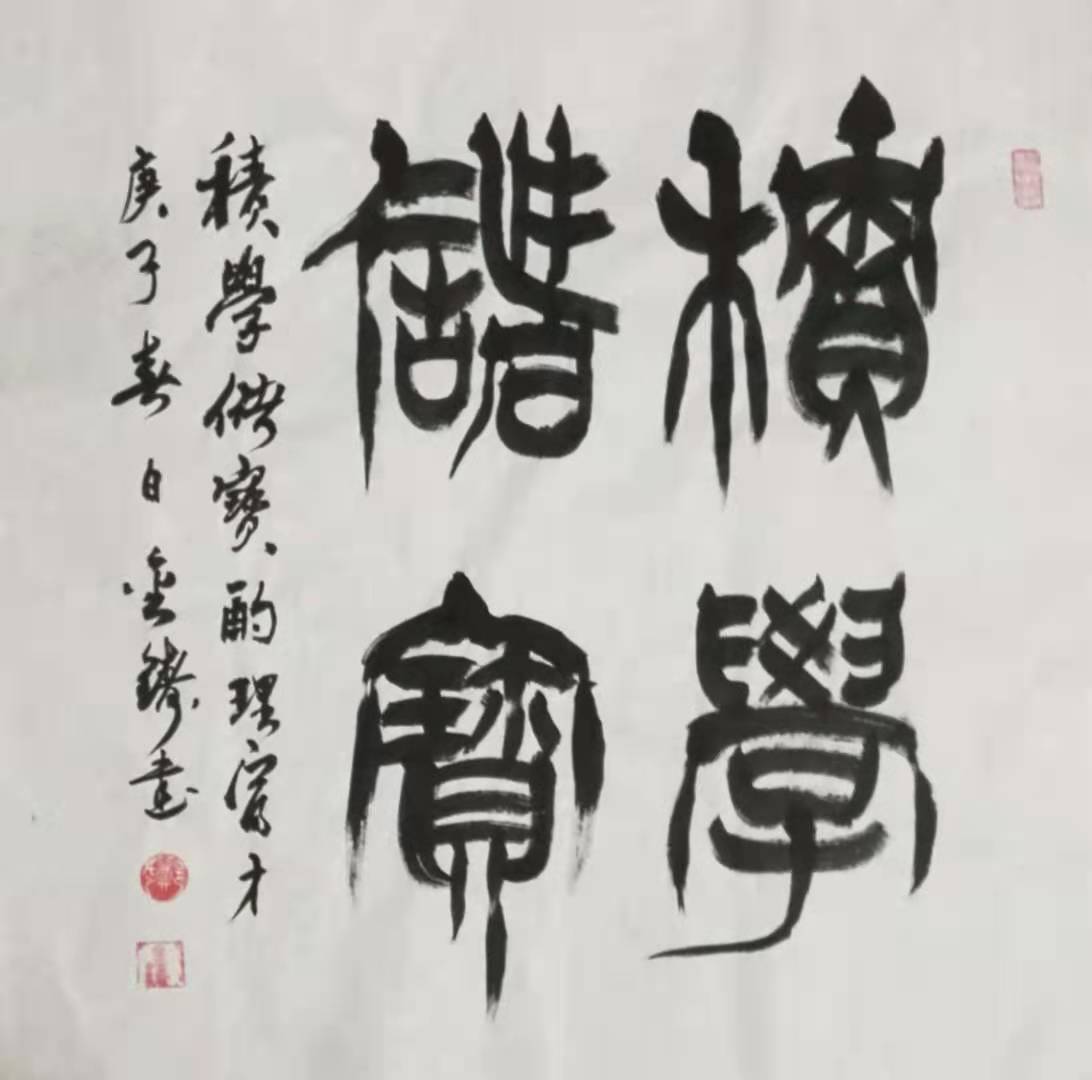 積學
儲寶
積學儲寶酌理富才
庚子春日金鑄書